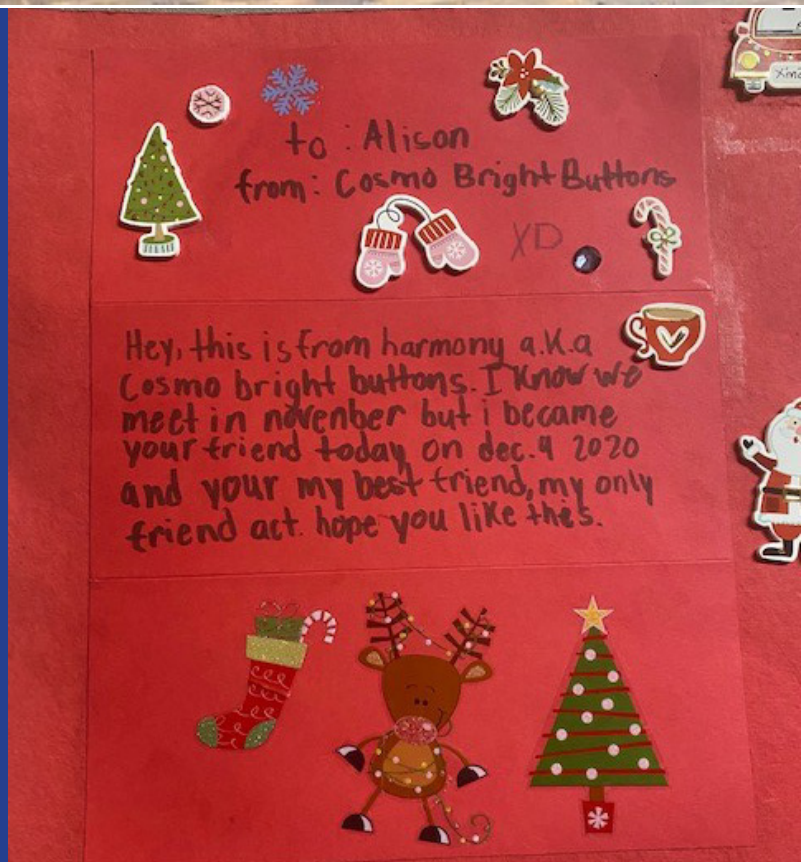 Xmas
to : Alison
from: Cosmo Bright Buttons
XD
Hey, this is from harmony a.k.a
Cosmo bright buttons. I know we
meet in novenber but i became
your friend today on dec. 9 2020
and your my best friend, my only
friend act. hope you like this.